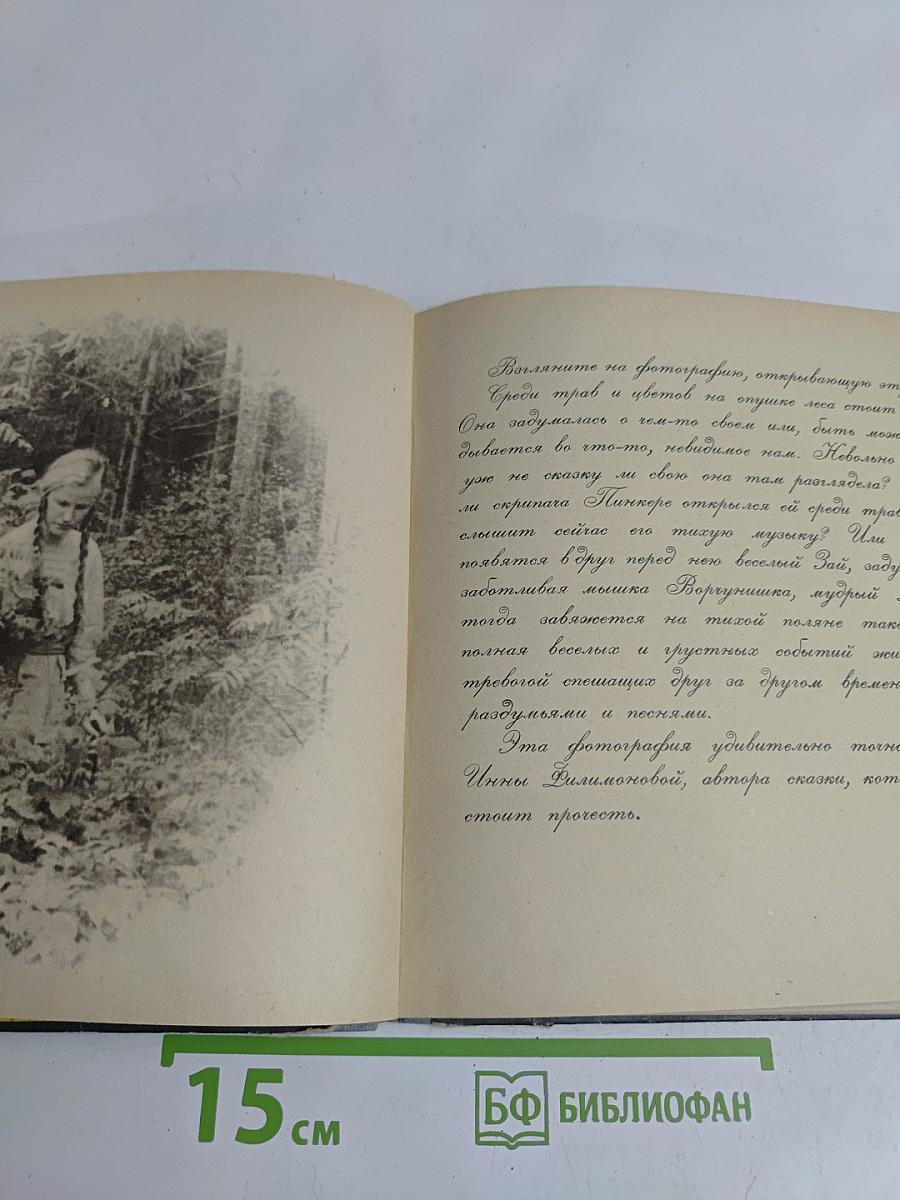 Взгляните на фотографию, открывающую эту
Среди трав и цветов на опушке леса стоит
Она задумалась о чем-то своем или, быть мож
дывается во что-то, невидимое нам. Невольно
уж не сказку ли свою она там разглядела?
ли скрипача Пинкере открылся ей среди трав
слышит сейчас его тихую музыку? Или
появятся вдруг перед нею веселый Зай, заду
заботливая мышка Ворчунишка, мудрый
тогда завяжется на тихой поляне тако
полная веселых и грустных событий жи
тревогой спешащих друг за другом времен
раздумьями и песнями.
Эта фотография удивительно точно
Инны Филимоновой, автора сказки, кот
стоит прочесть.
15 см
БФ БИБЛИОФАН